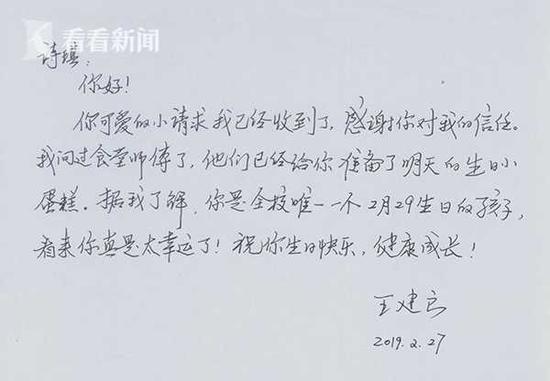 看看新闻
诗：
你好！
你可爱的小请求我已经收到了，感谢你对我的信任。
我问过食堂师傅了，他们已经给你准备了明天的生日小
蛋糕。据我了解，你是全校唯一一个2月29生日的孩子，
看来你真是太幸运了！祝你生日快乐，健康成长！
王建
2019.2.27